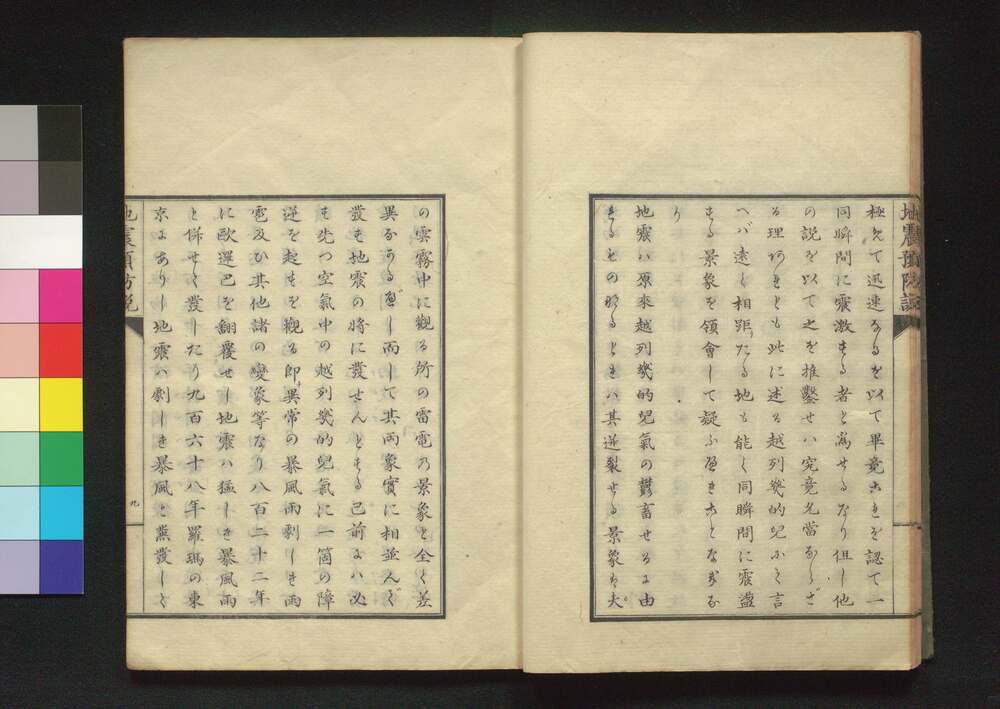 地震預防説
極めて迅速なるを以て畢竟これを認て一
同瞬間に震激する者と為せるなり但し他
の説を以て之を推鑿せハ究竟允當ならざ
る理ありとも此に述る越列幾的児ふて言
へバ遠く相距たる地も能く同瞬間に震盪
する景象を領會して疑ふべきことなかる
り
地震ハ原来越列幾的児氣の鬱蓄せるに由
するものなるときハ其迸裂せる景象も大
の雲霧中に觀る所の雷電の景象と全く差
異なかるべし而して其両象實に相並んで
發す地震の将に發せんとする已前にハ必
す先つ空氣中の越列幾的児氣に一箇の障
逆を起すを觀る即異常の暴風雨劇しき雨
雹及ひ其他諸の變象等なり八百二十二年
に欧邏巴を翻覆せし地震ハ猛しき暴風雨
と併せて發したり九百六十八年羅瑪の東
京にありし地震ハ劇しき暴風と兼發して
地震預防説
九